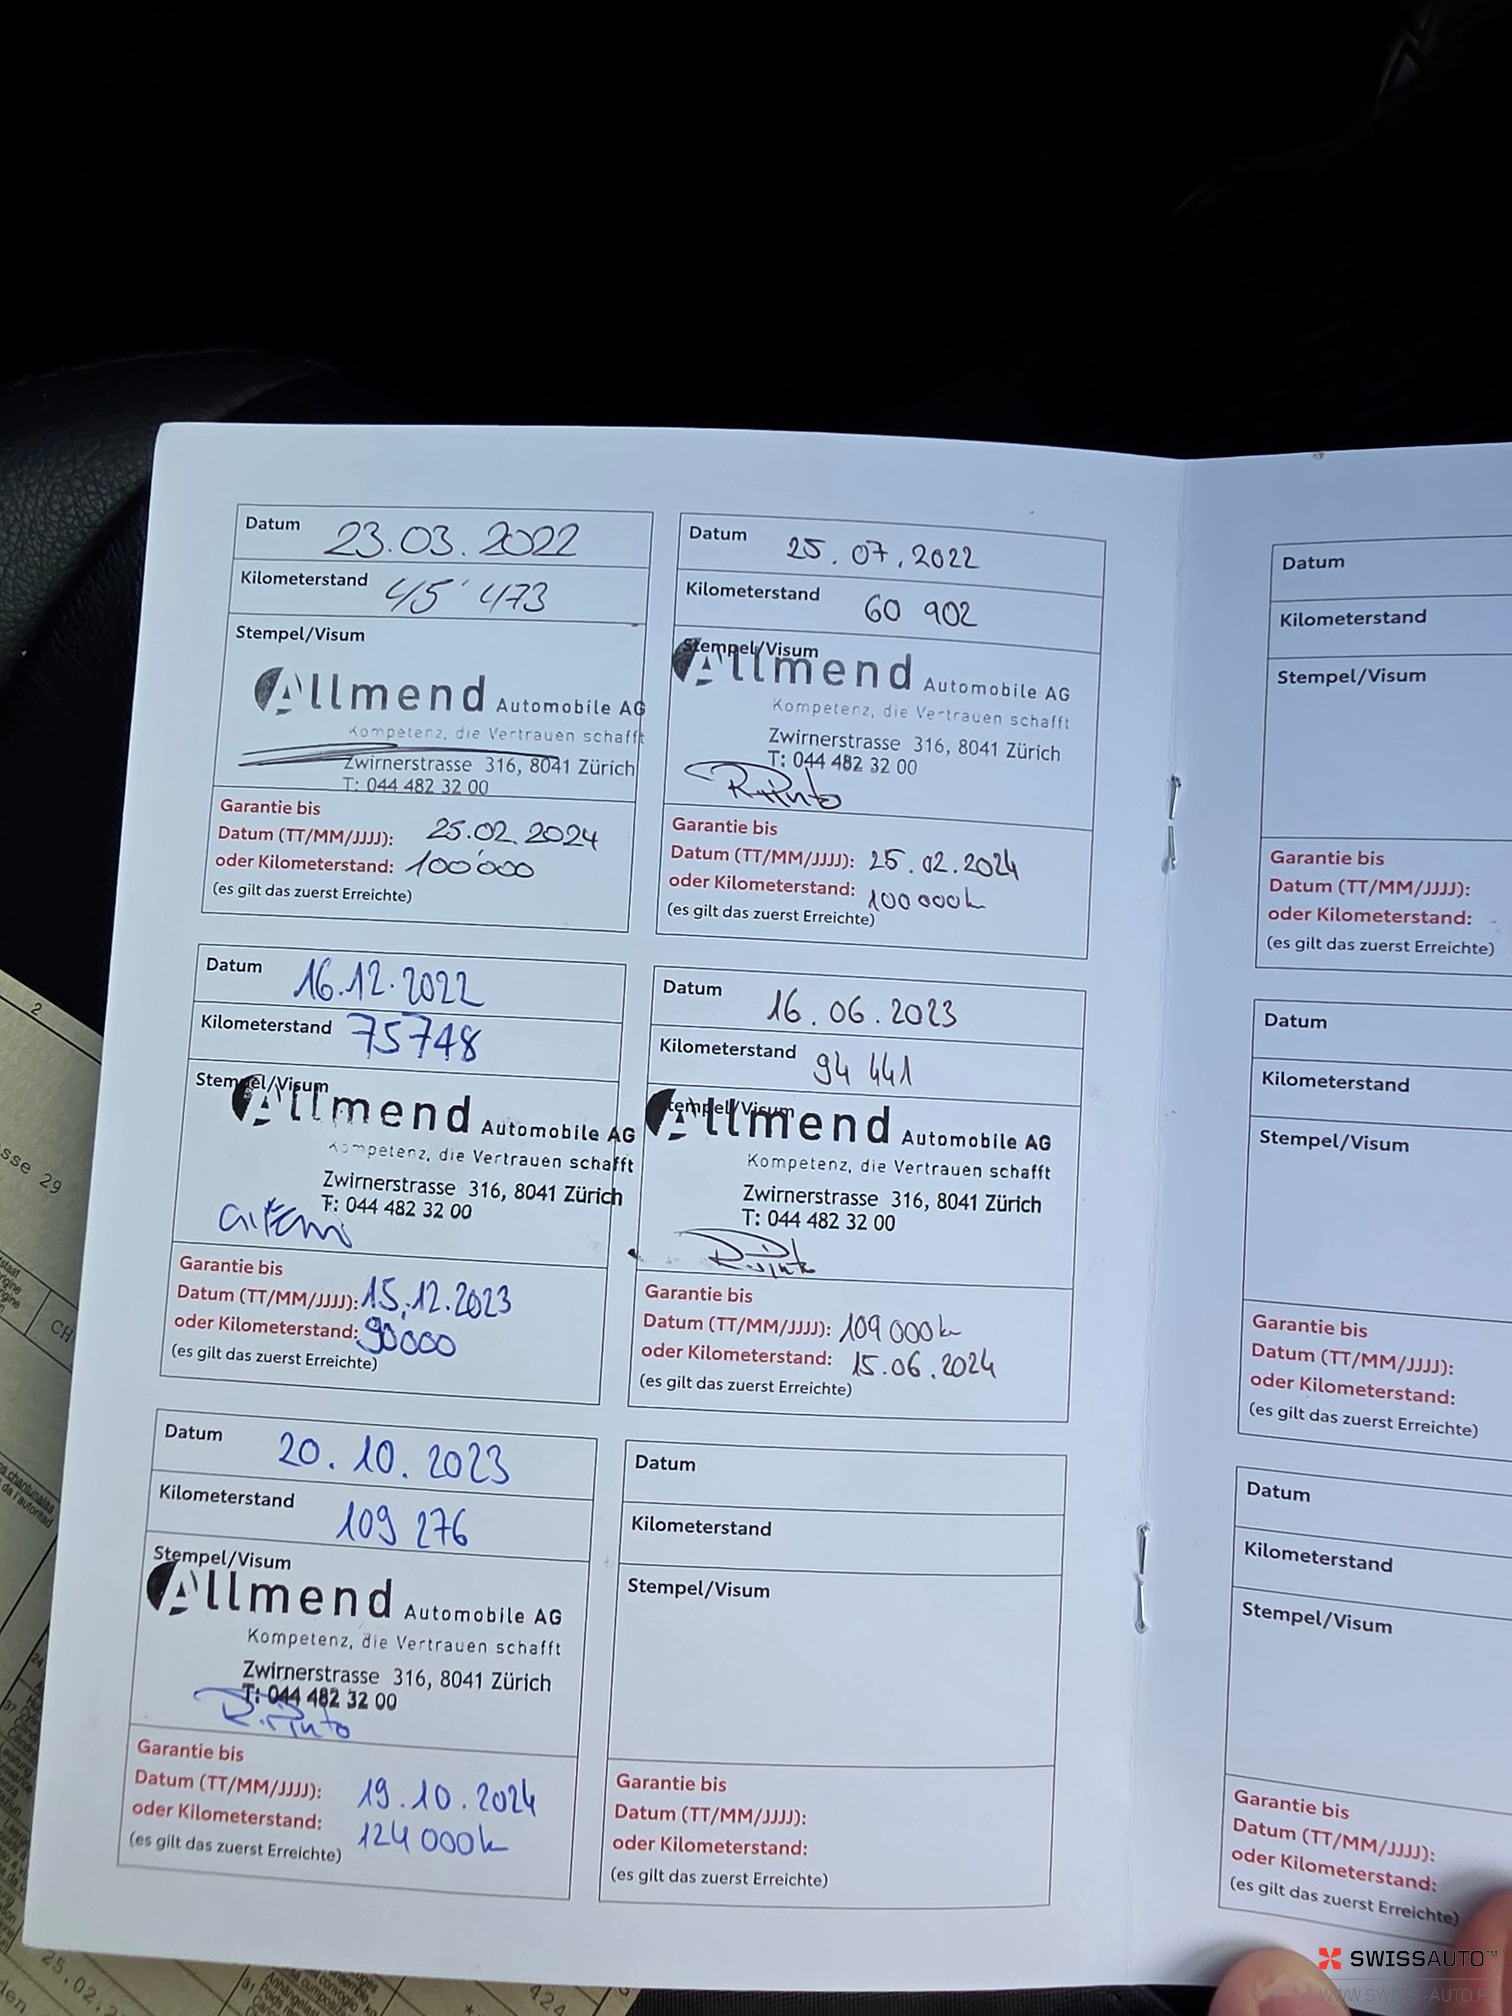 Datum 23.03.2022
Kilometerstand 45'473
Stempel/Visum
Allmend Automobile AG
Kompetenz, die Vertrauen schafft
Zwirnerstrasse 316, 8041 Zürich
T: 044 482 32 00
Garantie bis
Datum (TT/MM/JJJJ): 25.02.2024
oder Kilometerstand: 100'000
(es gilt das zuerst Erreichte)
Datum 25.07.2022
Kilometerstand 60 902
Stempel/Visum
Allmend Automobile AG
Kompetenz, die Vertrauen schafft
Zwirnerstrasse 316, 8041 Zürich
T: 044 482 32 00
R. Pinto
Garantie bis
Datum (TT/MM/JJJJ): 25.02.2024
oder Kilometerstand: 100 000k
(es gilt das zuerst Erreichte)
Datum 16.12.2022
Kilometerstand 75748
Stempel/Visum
Allmend Automobile AG
Kompetenz, die Vertrauen schafft
Zwirnerstrasse 316, 8041 Zürich
T: 044 482 32 00
Garantie bis
Datum (TT/MM/JJJJ): 15.12.2023
oder Kilometerstand: 90000
(es gilt das zuerst Erreichte)
Datum 16.06.2023
Kilometerstand 94 441
Stempel/Visum
Allmend Automobile AG
Kompetenz, die Vertrauen schafft
Zwirnerstrasse 316, 8041 Zürich
T: 044 482 32 00
R. Pinto
Garantie bis
Datum (TT/MM/JJJJ): 109 000k
oder Kilometerstand: 15.06.2024
(es gilt das zuerst Erreichte)
Datum 20.10.2023
Kilometerstand 109 276
Stempel/Visum
Allmend Automobile AG
Kompetenz, die Vertrauen schafft
Zwirnerstrasse 316, 8041 Zürich
T: 044 482 32 00
R. Pinto
Garantie bis
Datum (TT/MM/JJJJ): 19.10.2024
oder Kilometerstand: 124 000k
(es gilt das zuerst Erreichte)
Datum
Kilometerstand
Stempel/Visum
Garantie bis
Datum (TT/MM/JJJJ):
oder Kilometerstand:
(es gilt das zuerst Erreichte)
Datum
Kilometerstand
Stempel/Visum
Garantie bis
Datum (TT/MM/JJJJ):
oder Kilometerstand:
(es gilt das zuerst Erreichte)
Datum
Kilometerstand
Stempel/Visum
Garantie bis
Datum (TT/MM/JJJJ):
oder Kilometerstand:
(es gilt das zuerst Erreichte)
Datum
Kilometerstand
Stempel/Visum
Garantie bis
Datum (TT/MM/JJJJ):
oder Kilometerstand:
(es gilt das zuerst Erreichte)
2
sse 29
CH
25.02.2
424
SWISSAUTO™